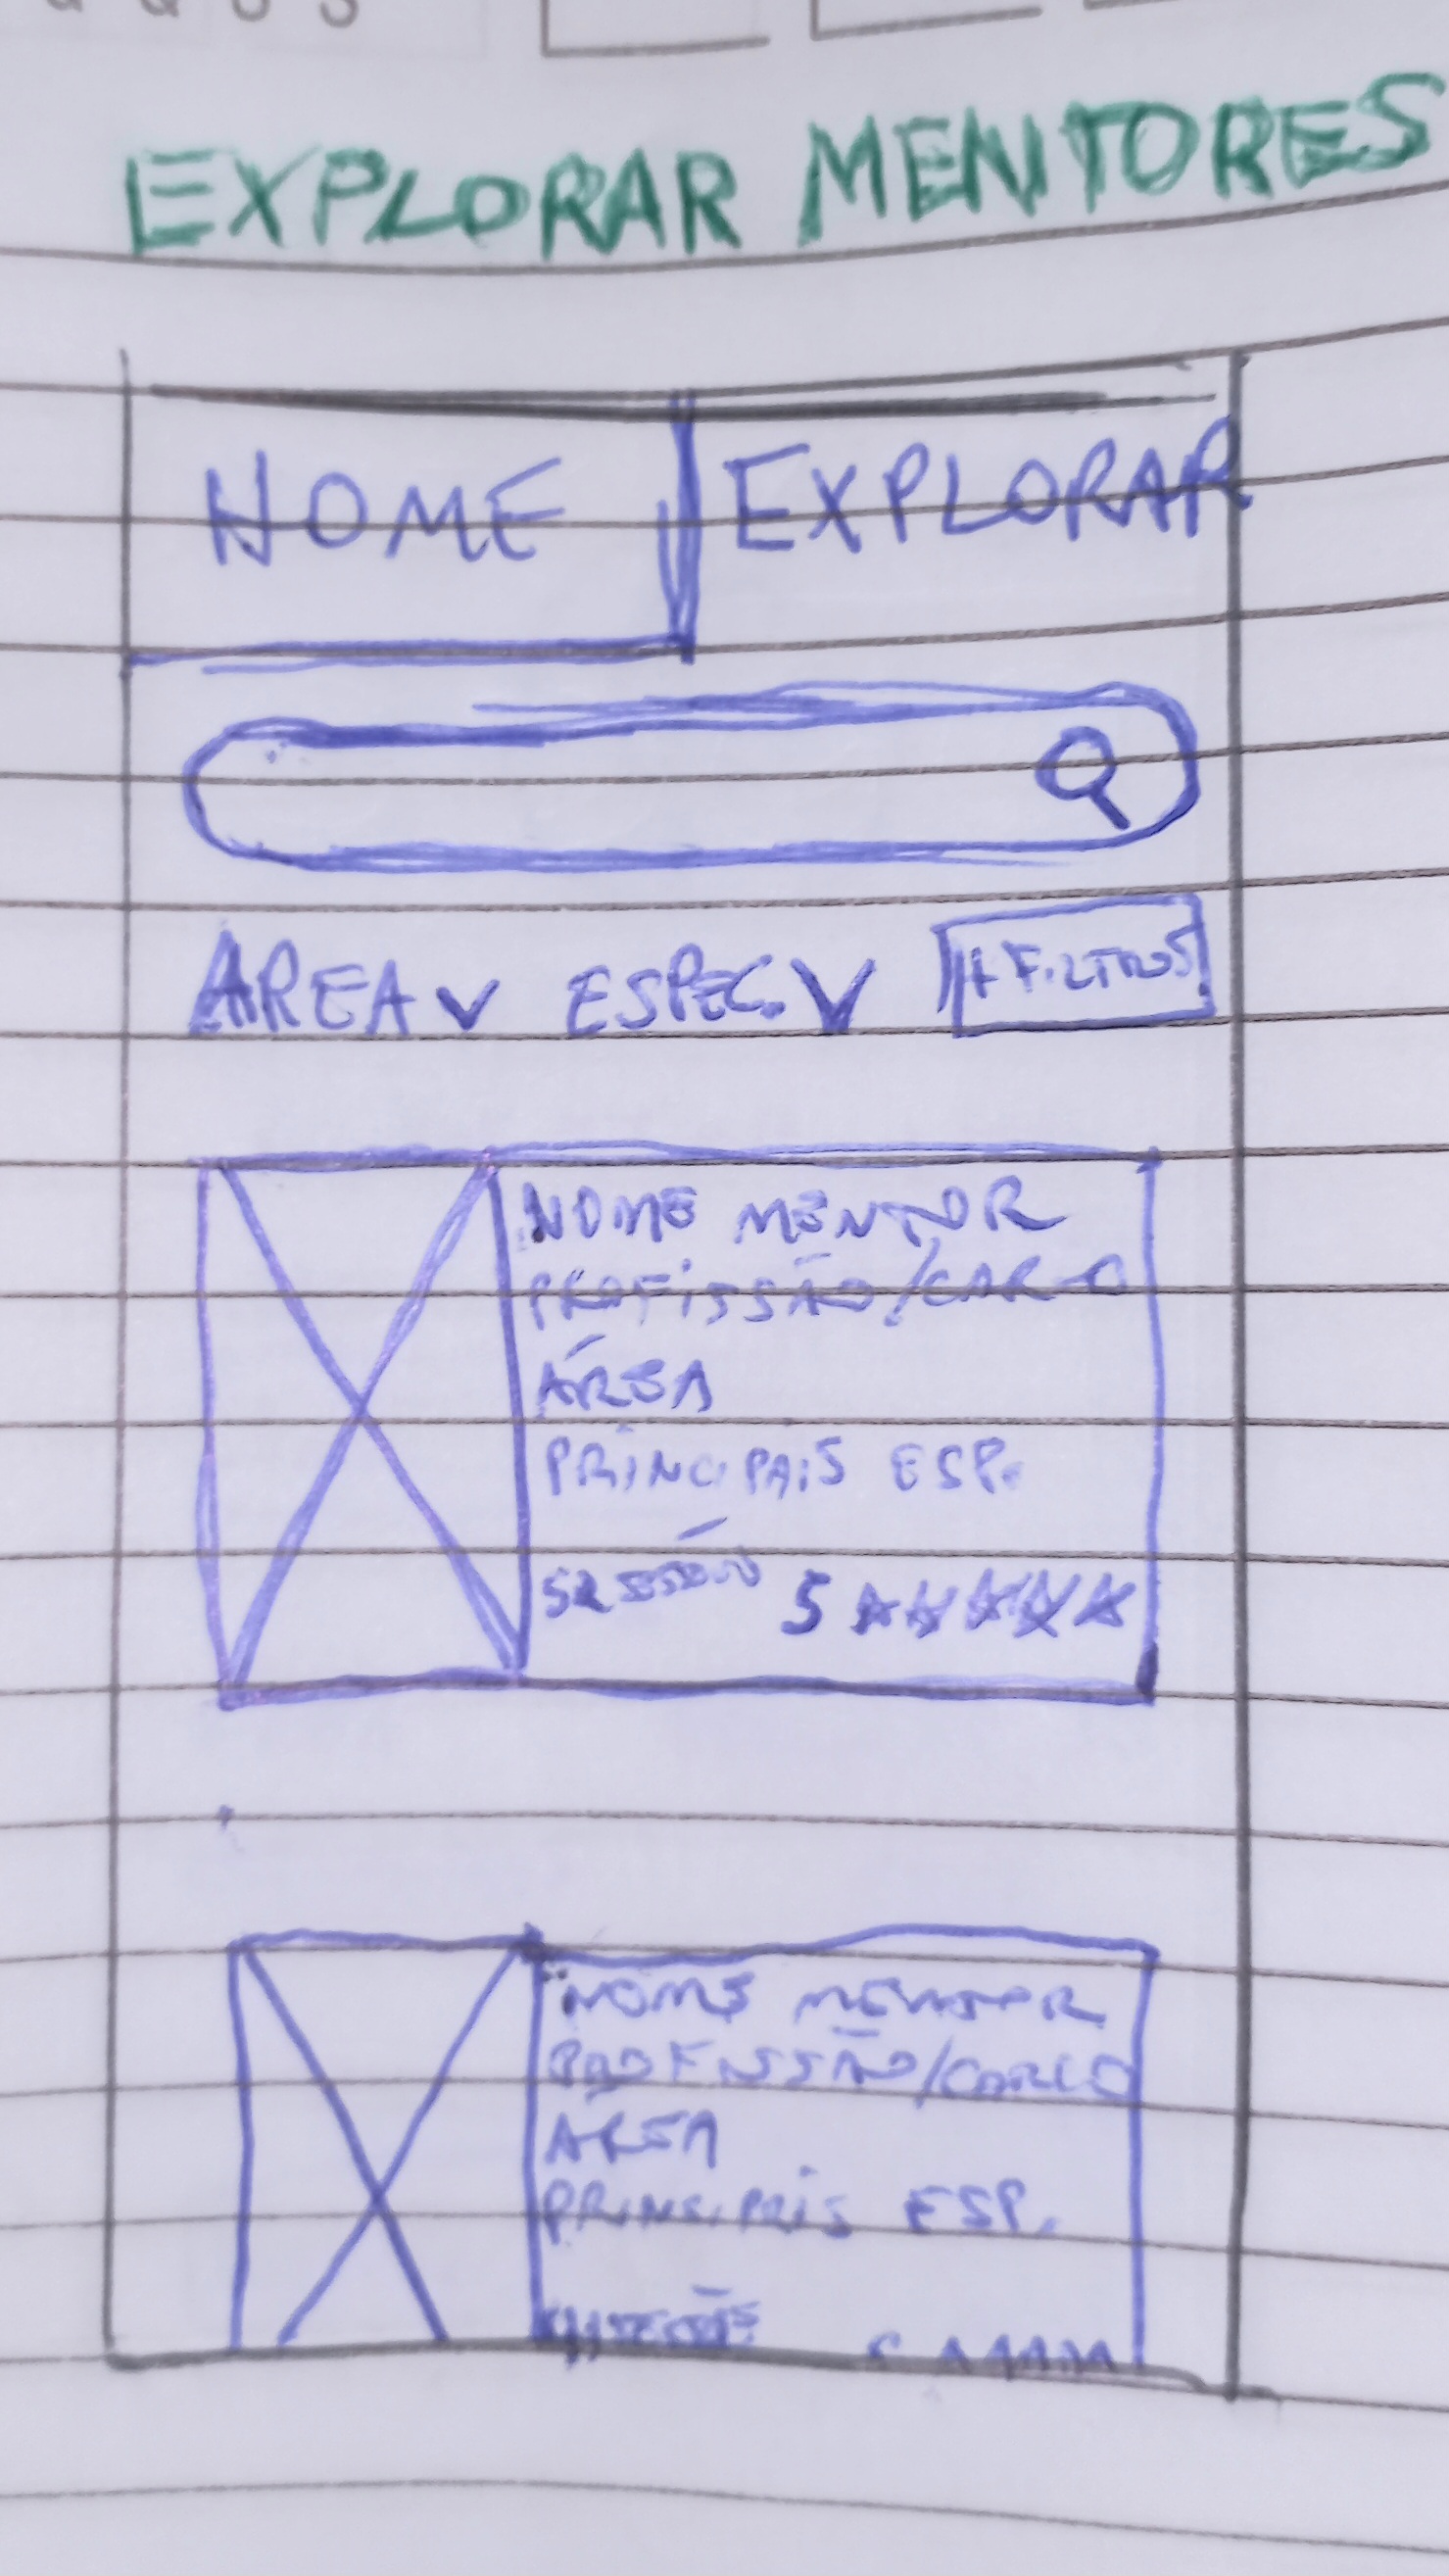 EXPLORAR MENTORES
HOME EXPLORAR
AREA ESPEC. + FILTROS
NOME MENTOR
PROFISSÃO/CARGO
ÁREA
PRINCIPAIS ESP.
SESSÕES 5 ☆☆☆☆☆
NOME MENTOR
PROFISSÃO/CARGO
ÁREA
PRINCIPAIS ESP.